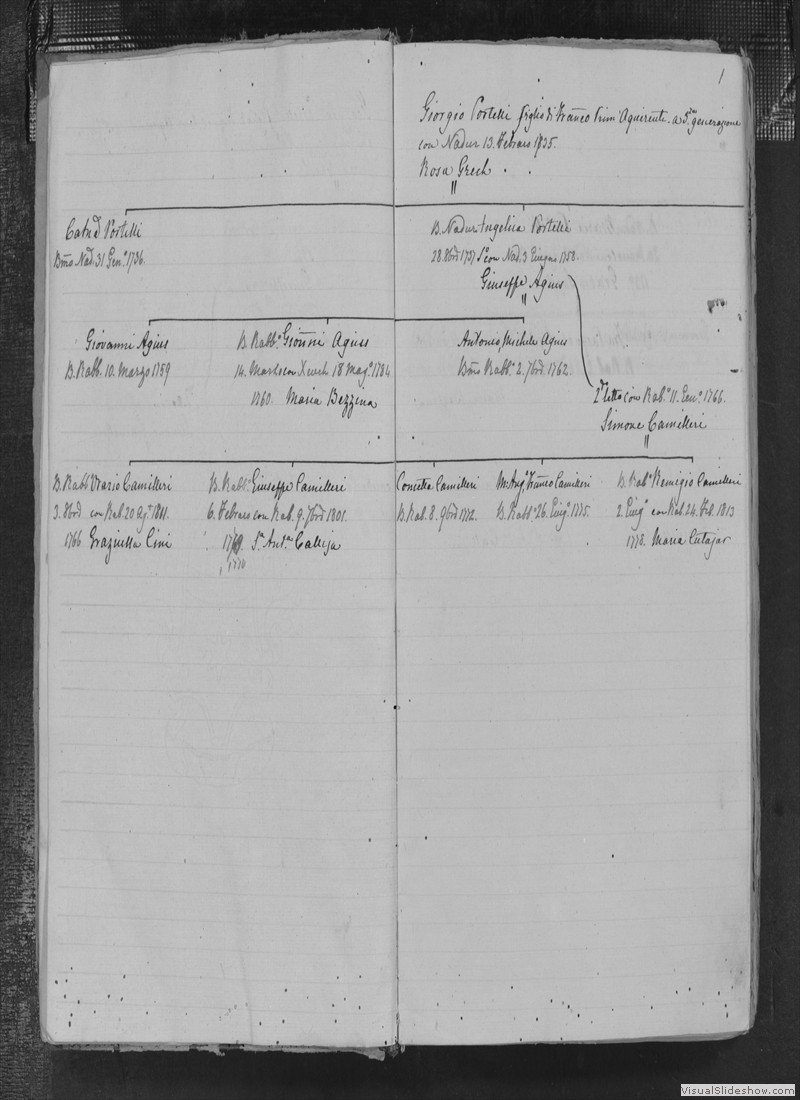 1
Giorgio Portelli figlio di Franco Prim' Aquirente. a 5ta generazione
con Nadur 13. Febraro 1735.
Rosa Grech . .
"
Catnd Portelli
Bmo Nad. 31 Gen.o 1736.
B. Nadur Angelica Portelli
28. 8bre 1737 con Nad. 3 Giugno 1758.
Giuseppe Agius
"
Giovanni Agius
B. Rabb. 10. Marzo 1759
B. Rabb.o Gionni Agius
14. Marzo con Xeuch. 18 Mag.o 1784
1760. Maria Bezzina
Antonio, Michele Agius
Bmo Rabb.o 2. 7bre 1762.
2o letto con Rab.o 11. Gen.o 1766.
Simone Camilleri
"
B. Rabb. Camilleri
3. 8bre con Rab. 20 Ag.o 1811.
1766 Graziella Cini
B. Rabb.o Giuseppe Camilleri
6. Febraro con Rab. 9. 7bre 1801.
1769. Calleja
1770
Camilleri
B. Rab. 8. 9bre 1772.
Camilleri
B. Rabb.o 26. Giug.o 1775.
B. Rab.o Remigio Camilleri
2. Giug.o con Rab. 24. Feb. 1813
1778. Maria Cutajar
VisualSlideshow.com